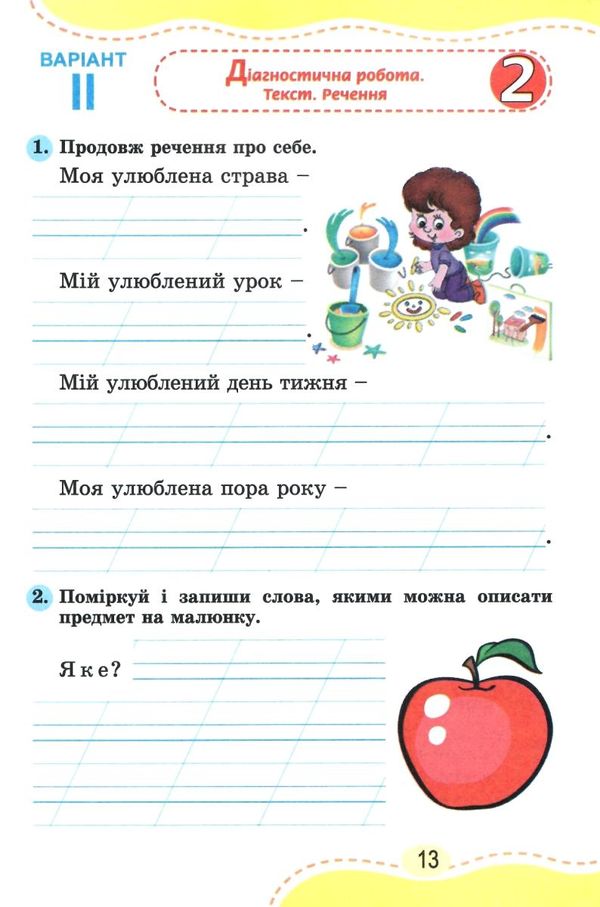 ВАРІАНТ
II
Діагностична робота.
Текст. Речення
2
1. Продовж речення про себе.
Моя улюблена страва –
.
Мій улюблений урок –
.
Мій улюблений день тижня –
.
Моя улюблена пора року –
.
2. Поміркуй і запиши слова, якими можна описати
предмет на малюнку.
Яке?
13